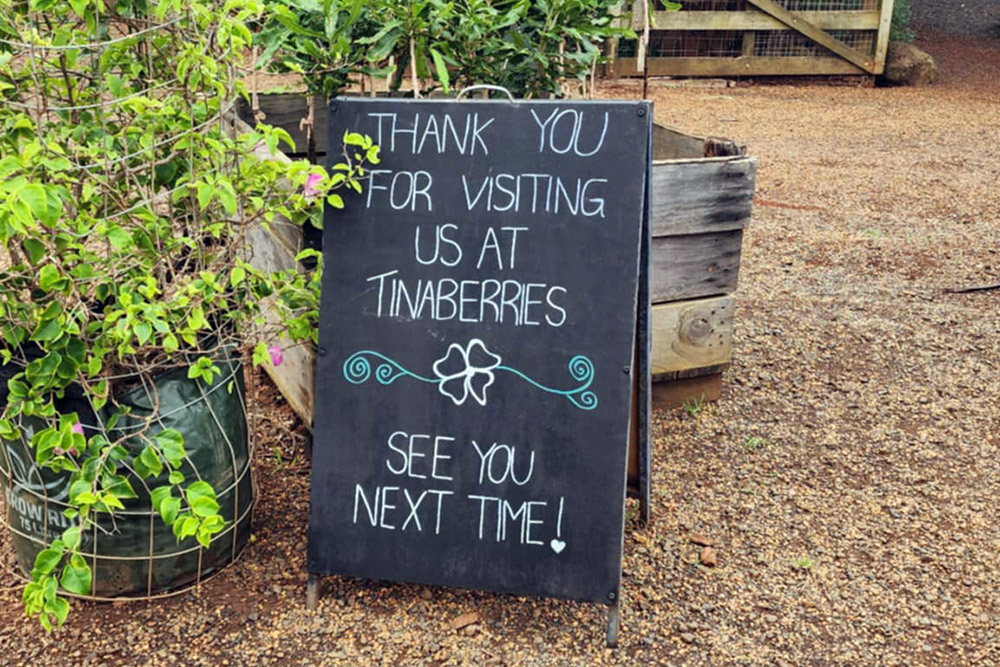 THANK YOU
FOR VISITING
US AT
TINABERRIES
SEE YOU
NEXT TIME!
75 L